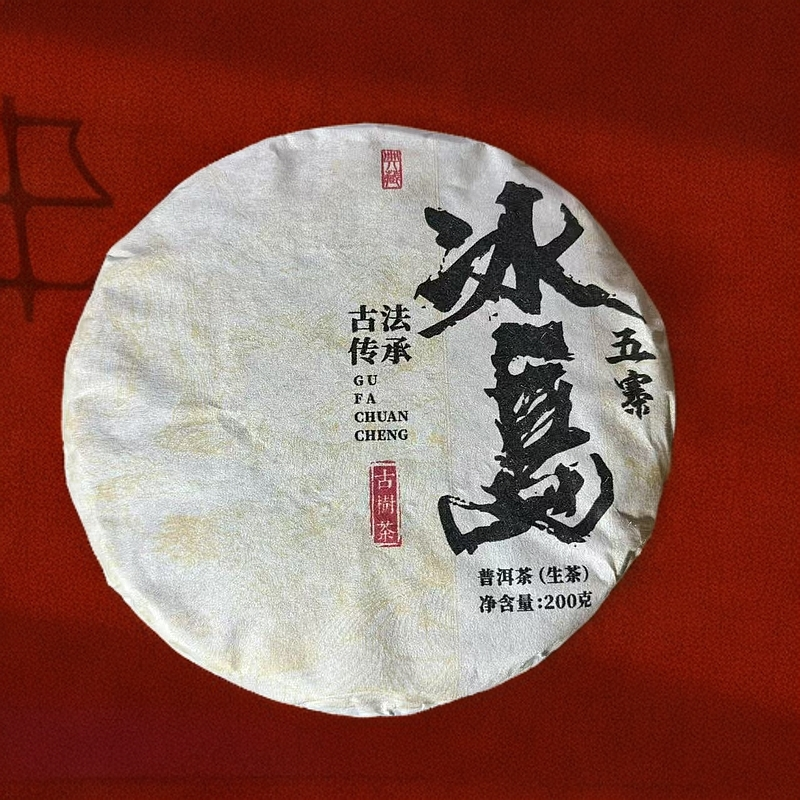 典藏
冰島
五寨
古法
传承
GU
FA
CHUAN
CHENG
古樹茶
普洱茶（生茶）
净含量:200克